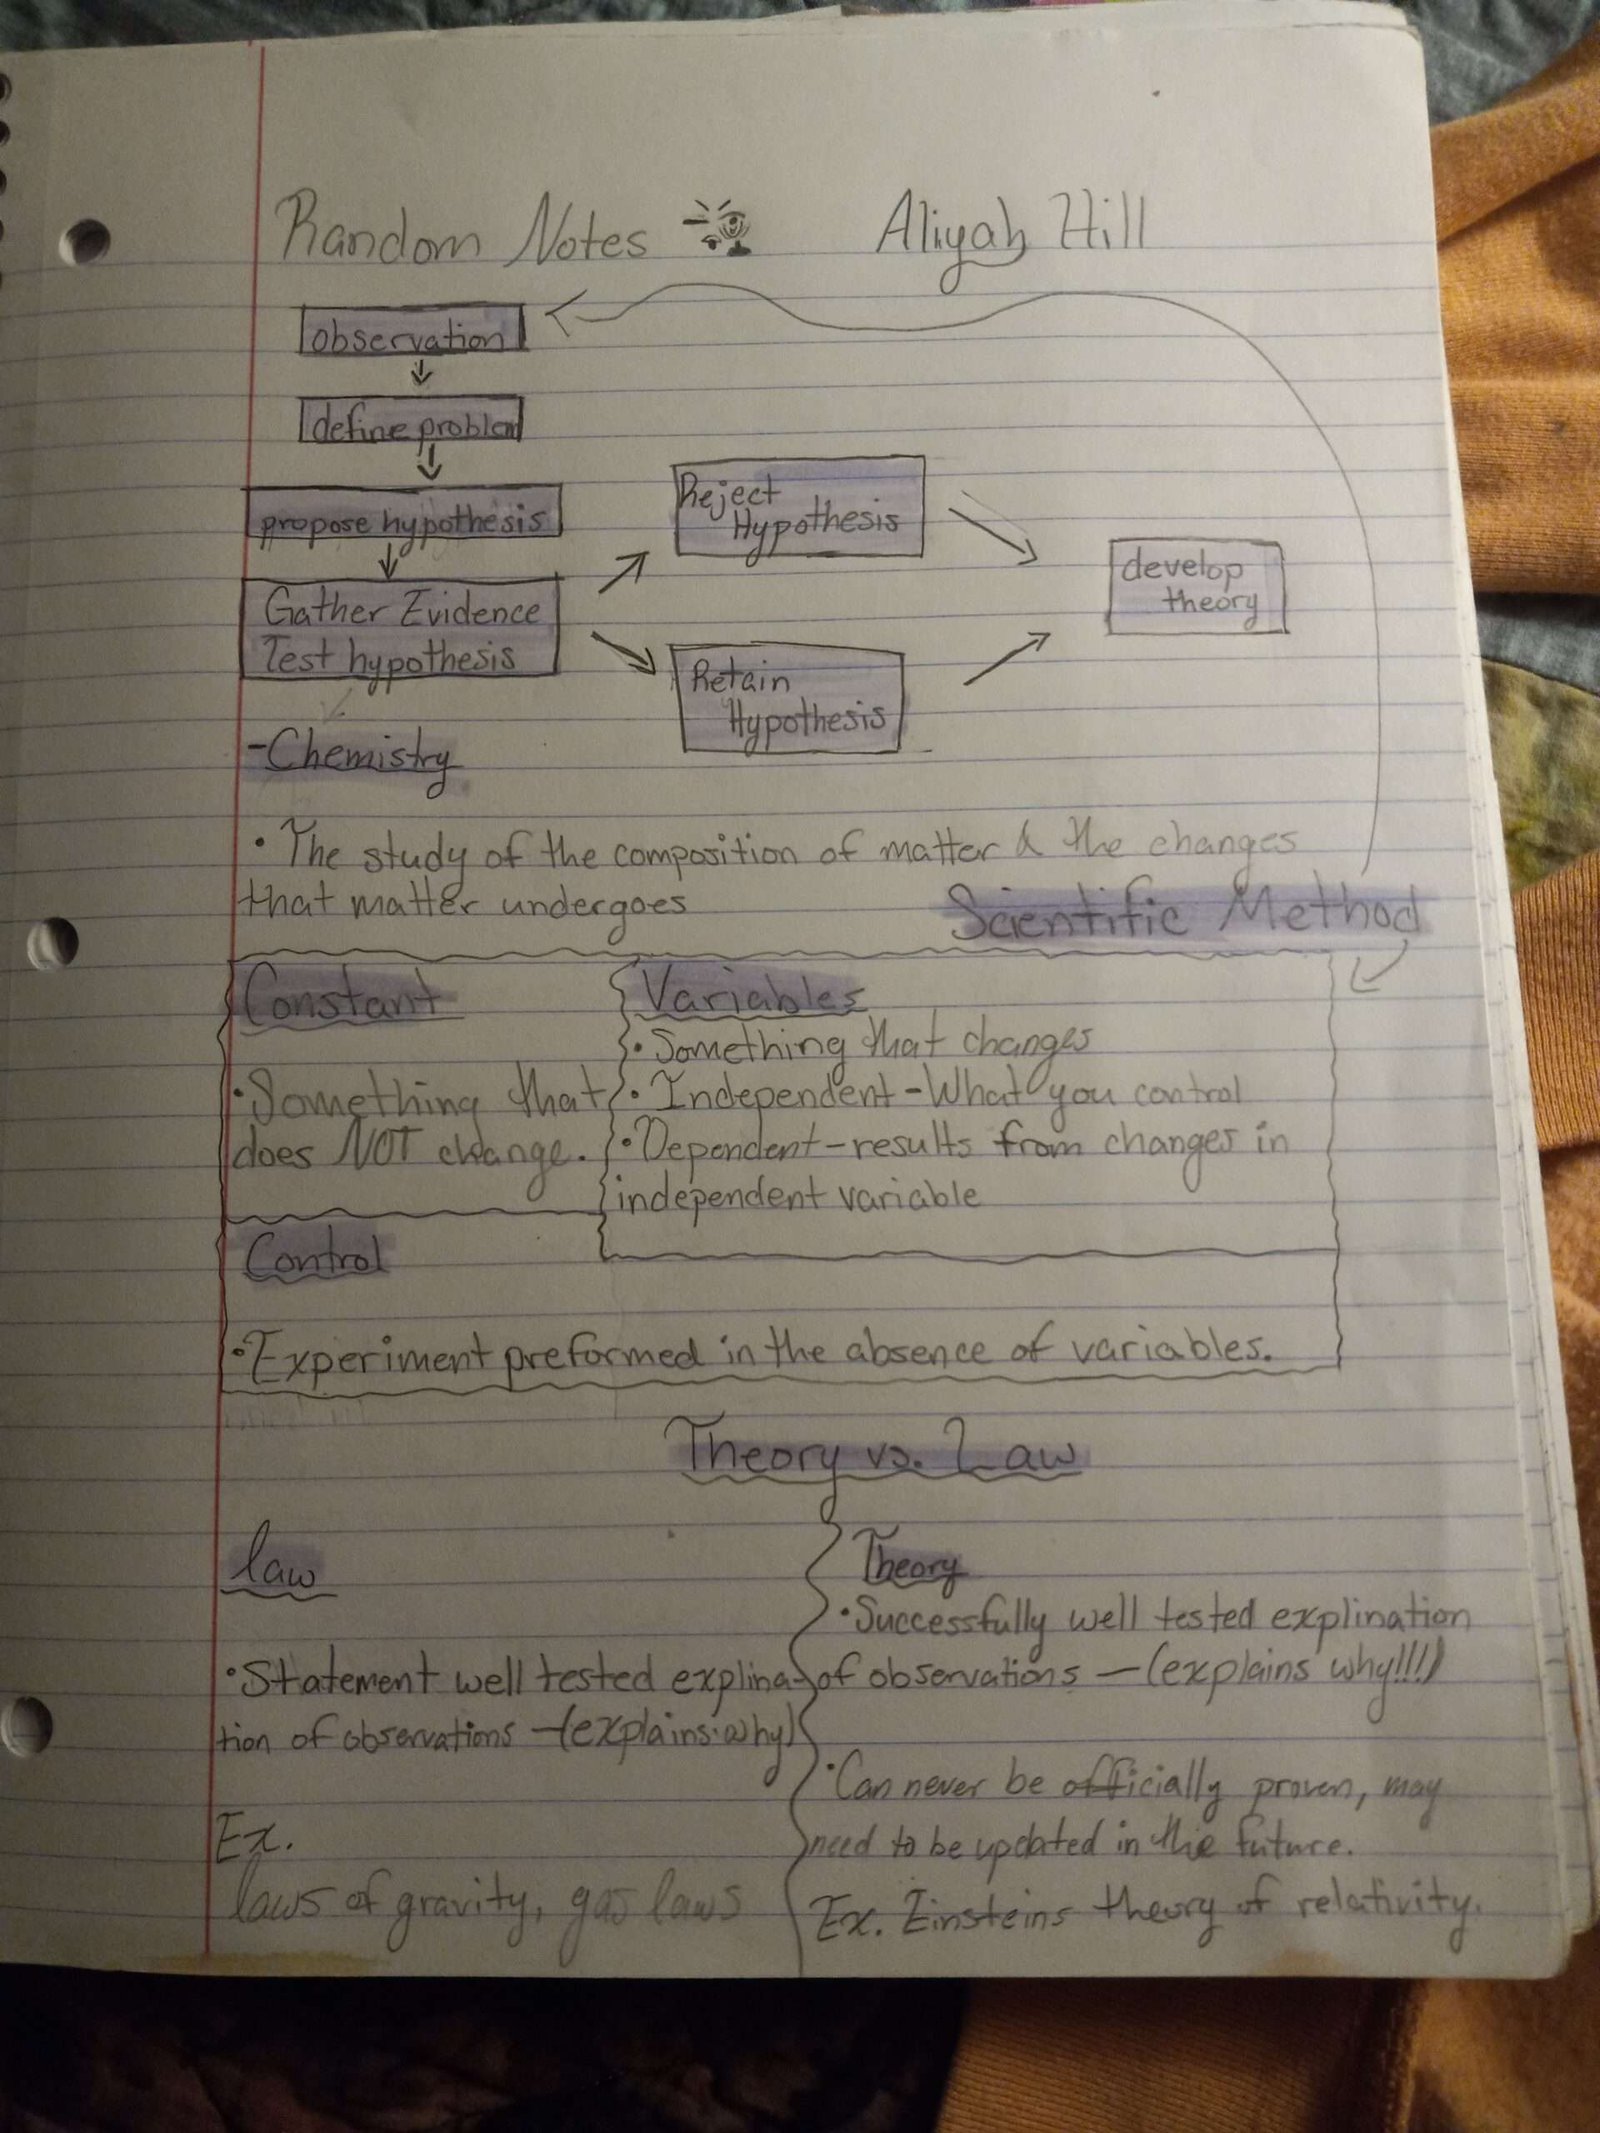 Random Notes Aliyah Hill
observation
define problem
propose hypothesis
Gather Evidence
Test hypothesis
Reject
Hypothesis
Retain
Hypothesis
develop
theory
-Chemistry
• The study of the composition of matter & the changes
that matter undergoes
Scientific Method
Constant
•Something that
does NOT change.
Variables
•Something that changes
•Independent-What you control
•Dependent-results from changes in
independent variable
Control
•Experiment preformed in the absence of variables.
Theory vs. Law
law
•Statement well tested explina-
tion of observations -(explains why)
Ex.
laws of gravity, gas laws
Theory
•Successfully well tested explination
of observations -(explains why!!!)
•Can never be officially proven, may
need to be updated in the future.
Ex. Einsteins theory of relativity.